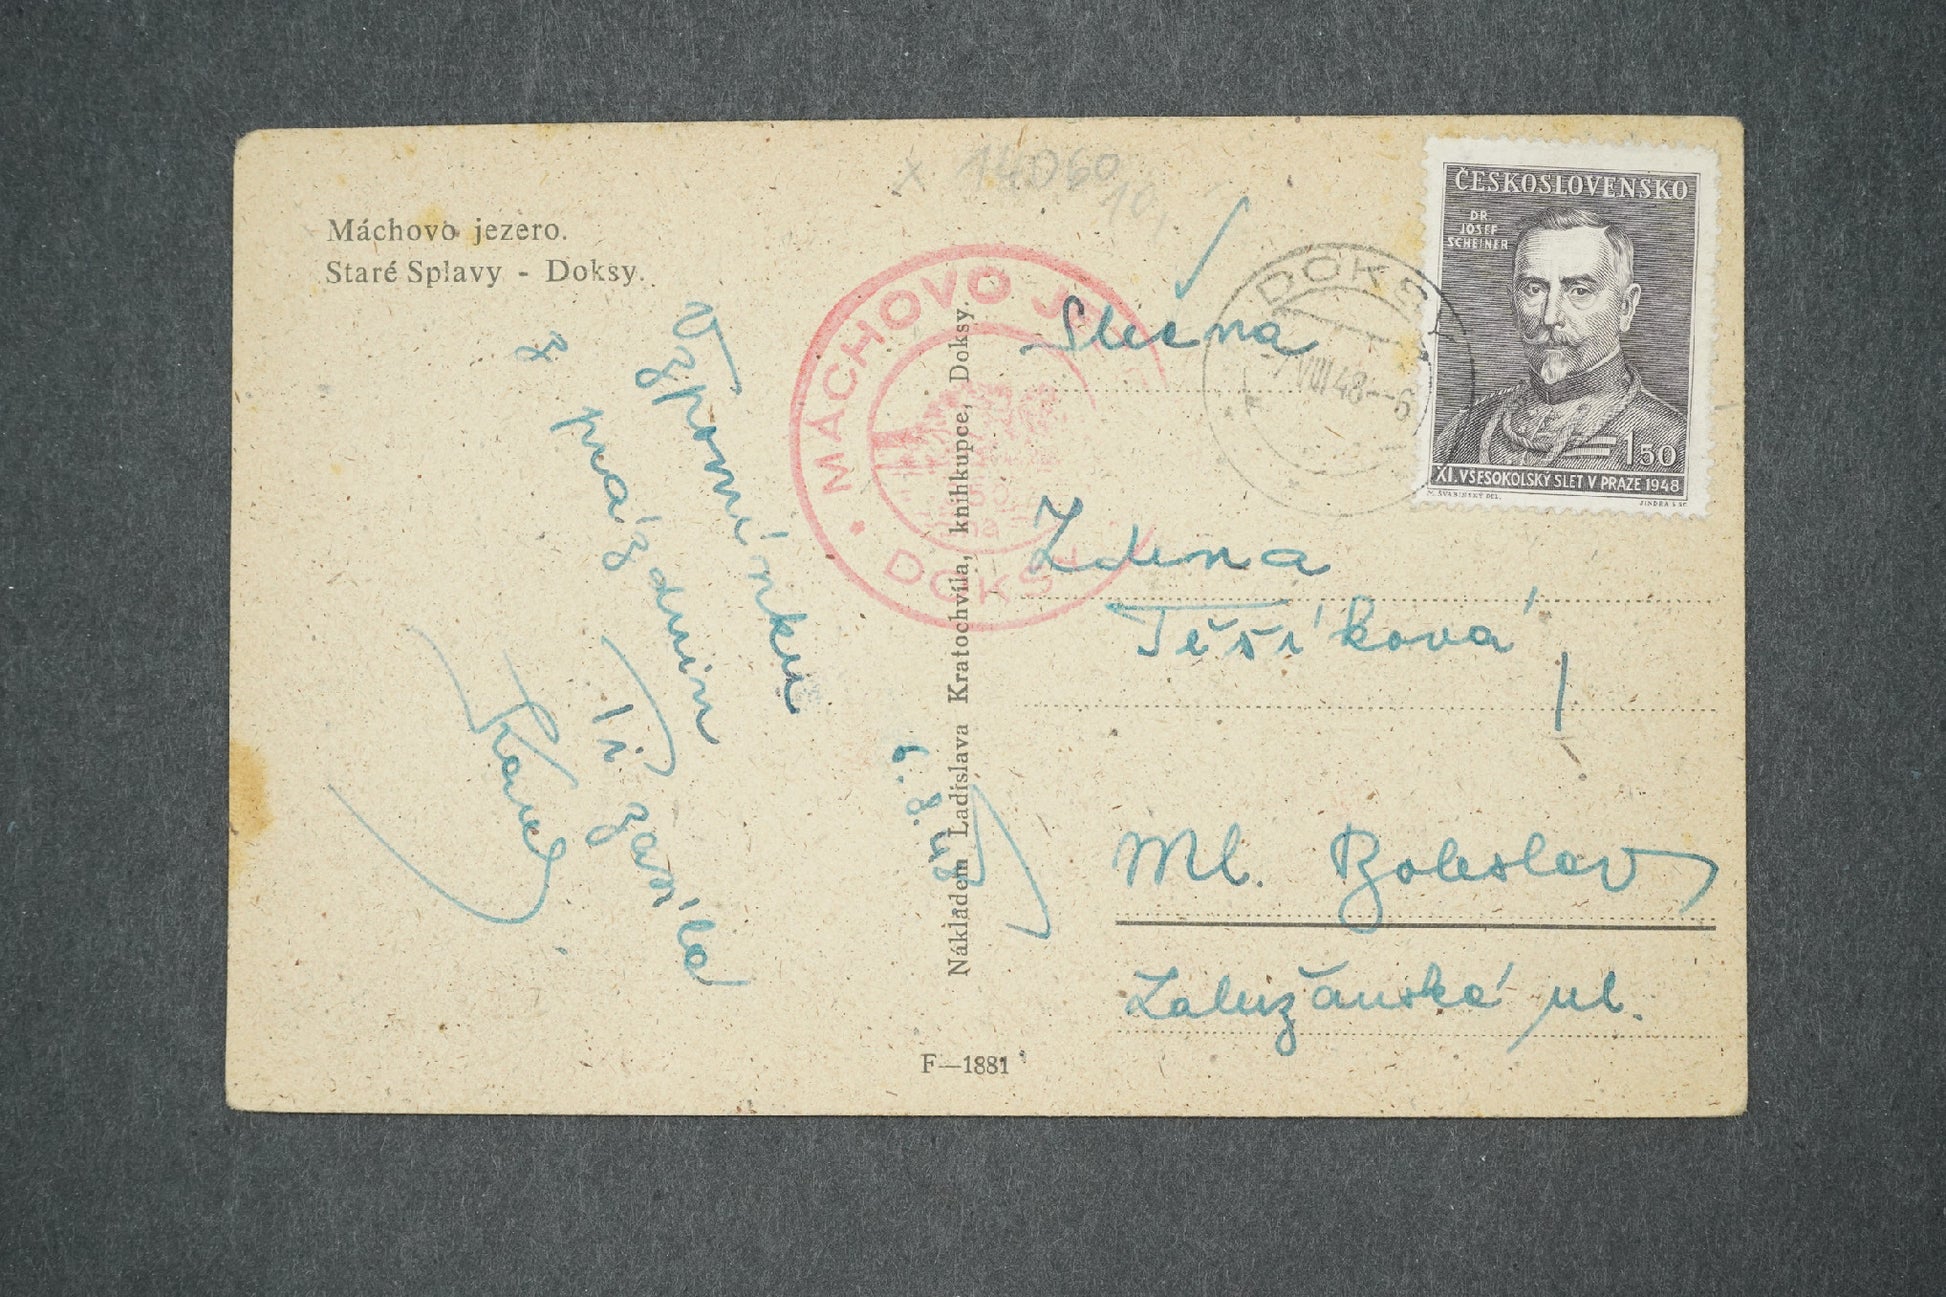 x 14060
10,
Máchovo jezero.
Staré Splavy - Doksy.
Vzpomínku
z prázdnin
Ti zasílá
Karel.
6. 8. 48
MÁCHOVO
DOKSY
Nákladem Ladislava Kratochvíla, knihkupce, Doksy.
F—1881
DOKSY
7 VIII 48--6
ČESKOSLOVENSKO
DR
JOSEF
SCHEINER
1.50
XI. VŠESOKOLSKÝ SLET V PRAZE 1948
M. ŠVABINSKÝ DEL.
JINDRA SC.
Slečna
Zdena
Těšíková
Ml. Boleslav
Zalužanská ul.